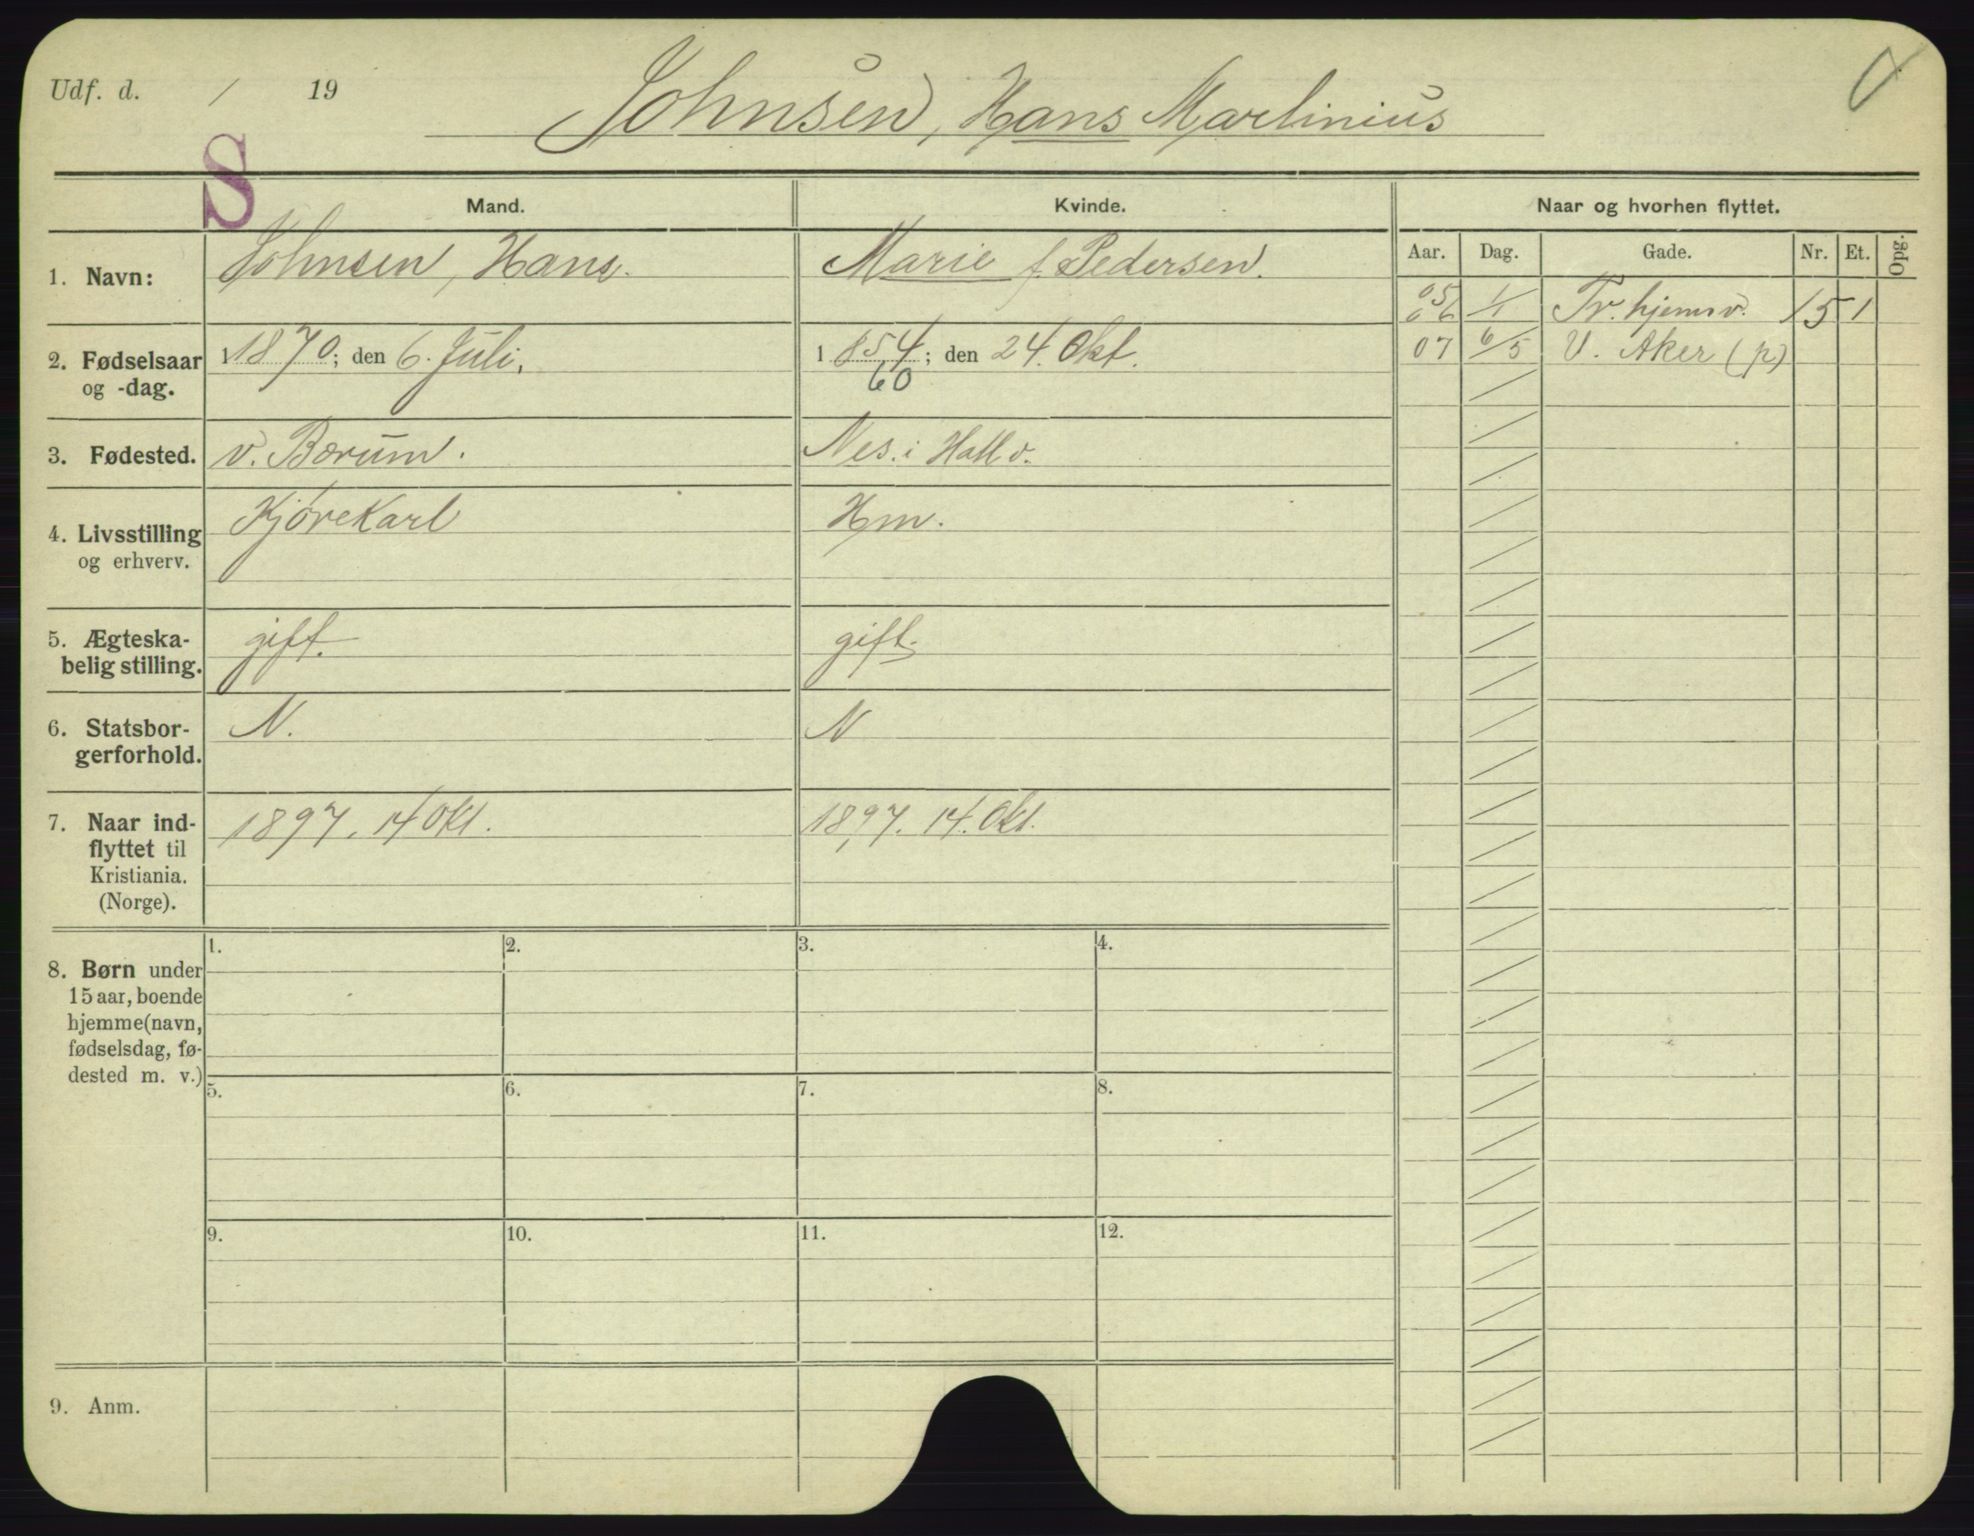 Udf. d. / 19
Johnsen, Hans Martinius
S
Mand. Kvinde. Naar og hvorhen flyttet.
Aar. Dag. Gade. Nr. Et. Opg.
1. Navn: Johnsen, Hans. Marie f. Pedersen.
05 06 1/1 Tr. hjemsv. 15 1
07 6/5 V. Aker (p)
2. Fødselsaar og -dag. 1 1870; den 6. Juli. 1 854; den 24. Okt.
60
3. Fødested. v. Bærum. Nes. i Hall d.
4. Livsstilling og erhverv. Kjørekarl Hm.
5. Ægteska-
belig stilling. gift. gift.
6. Statsbor-
gerforhold. N. N
7. Naar ind-
flyttet til
Kristiania.
(Norge).
1897. 14 Okt. 1897. 14. Okt.
8. Børn under
15 aar, boende
hjemme (navn,
fødselsdag, fø-
dested m. v.)
1. 2. 3. 4.
5. 6. 7. 8.
9. 10. 11. 12.
9. Anm.